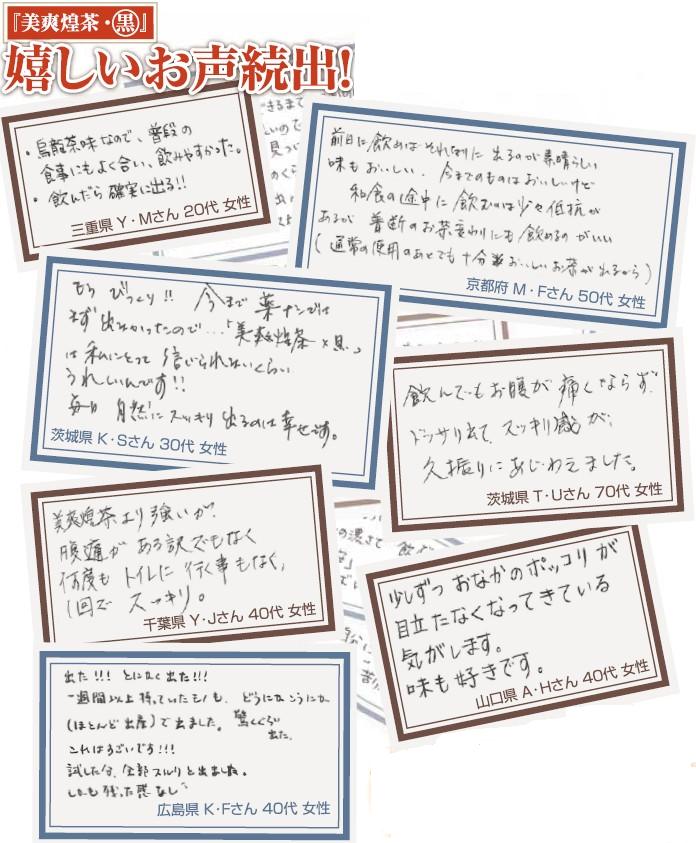 『美爽煌茶・黒』
嬉しいお声続出!
・烏龍茶味なので、普段の
食事にもよく合い、飲みやすかった。
・飲んだら確実に出る!!
三重県 Y・Mさん 20代 女性
前日に飲めばそれなりに出るのが素晴らしい
味もおいしい。今までのものはおいしいけど
和食の途中に飲むのは少々低抗が
あるが普断のお茶変わりにも飲めるのがいい
(通常の使用のあとでも十分おいしいお茶が出るから)
京都府 M・Fさん 50代 女性
もう びっくり!! 今まで 薬ナシでは
まず出なかったので…「美爽煌茶×黒」
は私にとって信じられないくらい
うれしいんです!!
毎日 自然にスッキリ出るのは幸せです。
茨城県 K・Sさん 30代 女性
飲んでもお腹が痛くならず、
ドッサリ出て、スッキリ感が、
久振りにあじわえました。
茨城県 T・Uさん 70代 女性
美爽煌茶より強いが、
腹痛がある訳でもなく
何度もトイレに行く事もなく、
1回でスッキリ。
千葉県 Y・Jさん 40代 女性
少しずつおなかのポッコリが
目立たなくなってきている
気がします。
味も好きです。
山口県 A・Hさん 40代 女性
出た!!! とにかく出た!!!
一週間以上持っていたモノも、どうにかこうにか
(ほとんど出産)で出ました。驚くくらい
出た。
これはすごいです!!!
試した分、全部スルリと出ましたね。
しかも残った感なし
広島県 K・Fさん 40代 女性